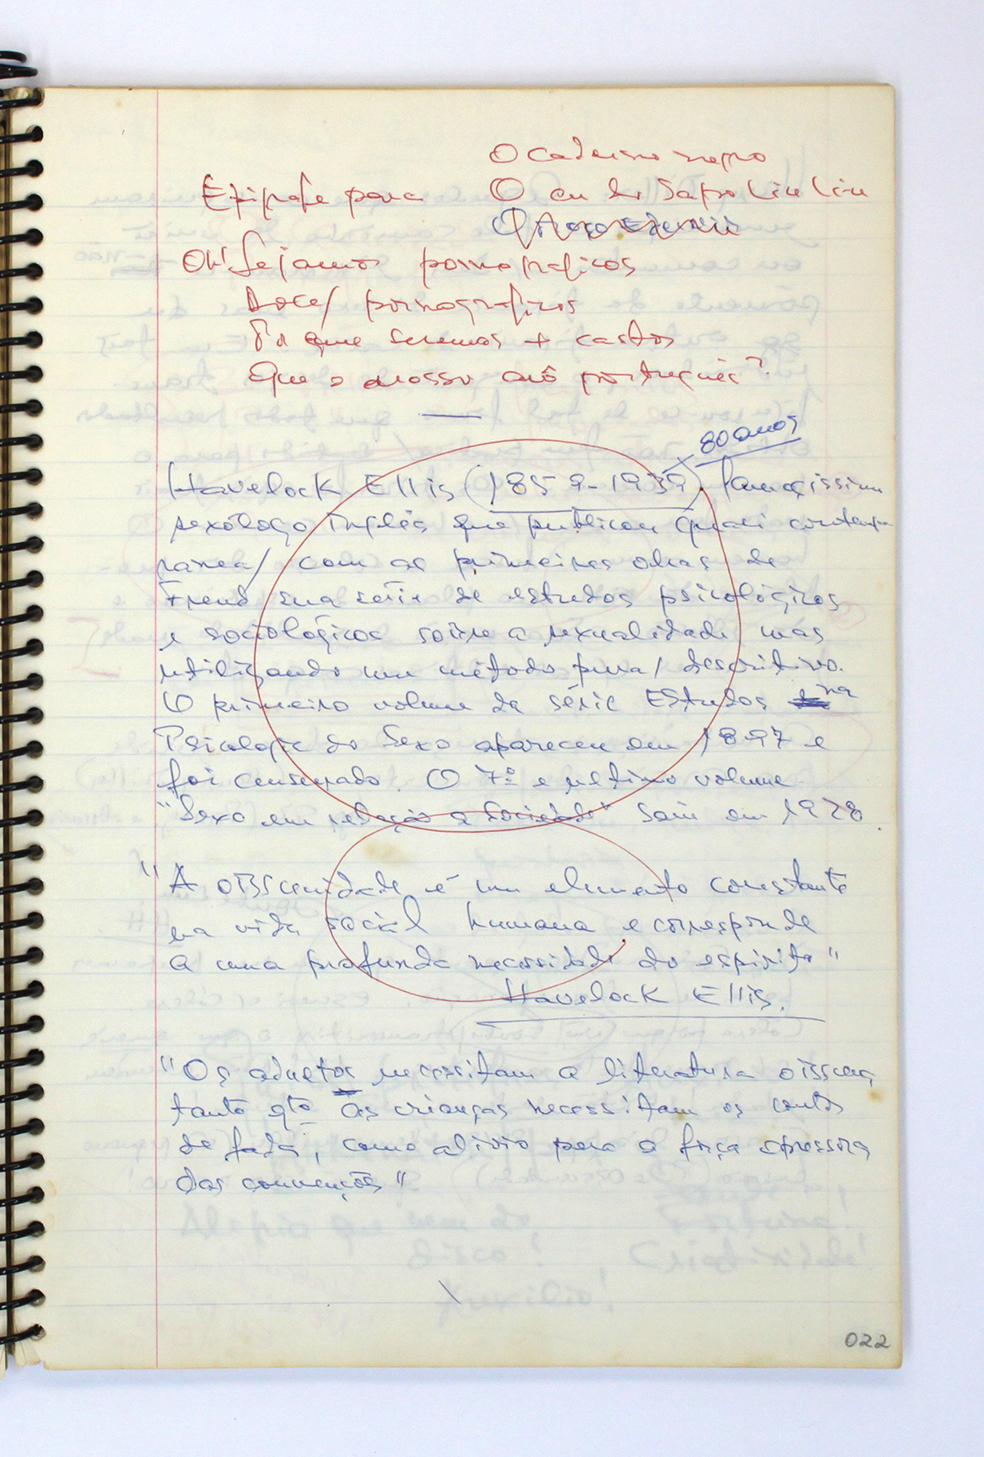 O Caderno negro
Epígrafe para O cu do Sapo Liu Liu
Oh! Sejamos pornográficos
doce/ pornográficos
Pq que seremos + castos
Que o nosso avô português?
80 anos
Havelock Ellis (1859-1939) famosíssimo
sexólogo inglês que publicou quase contempo
ranea/ com as primeiras obras de
Freud sua série de estudos psicológicos
e sociológicos sobre a sexualidade mas
utilizando um método pura/ descritivo.
O primeiro volume da série Estudos na
Psicologia do Sexo apareceu em 1897 e
foi censurado. O 7º e último volume
"Sexo em relação a Sociedade" saiu em 1928.
"A obscenidade é um elemento constante
na vida social humana e corresponde
a uma profunda necessidade do espírito"
Havelock Ellis.
"Os adultos necessitam a literatura obscena
tanto qto as crianças necessitam os contos
de fada, como alívio para a força opressora
das convenções"
022